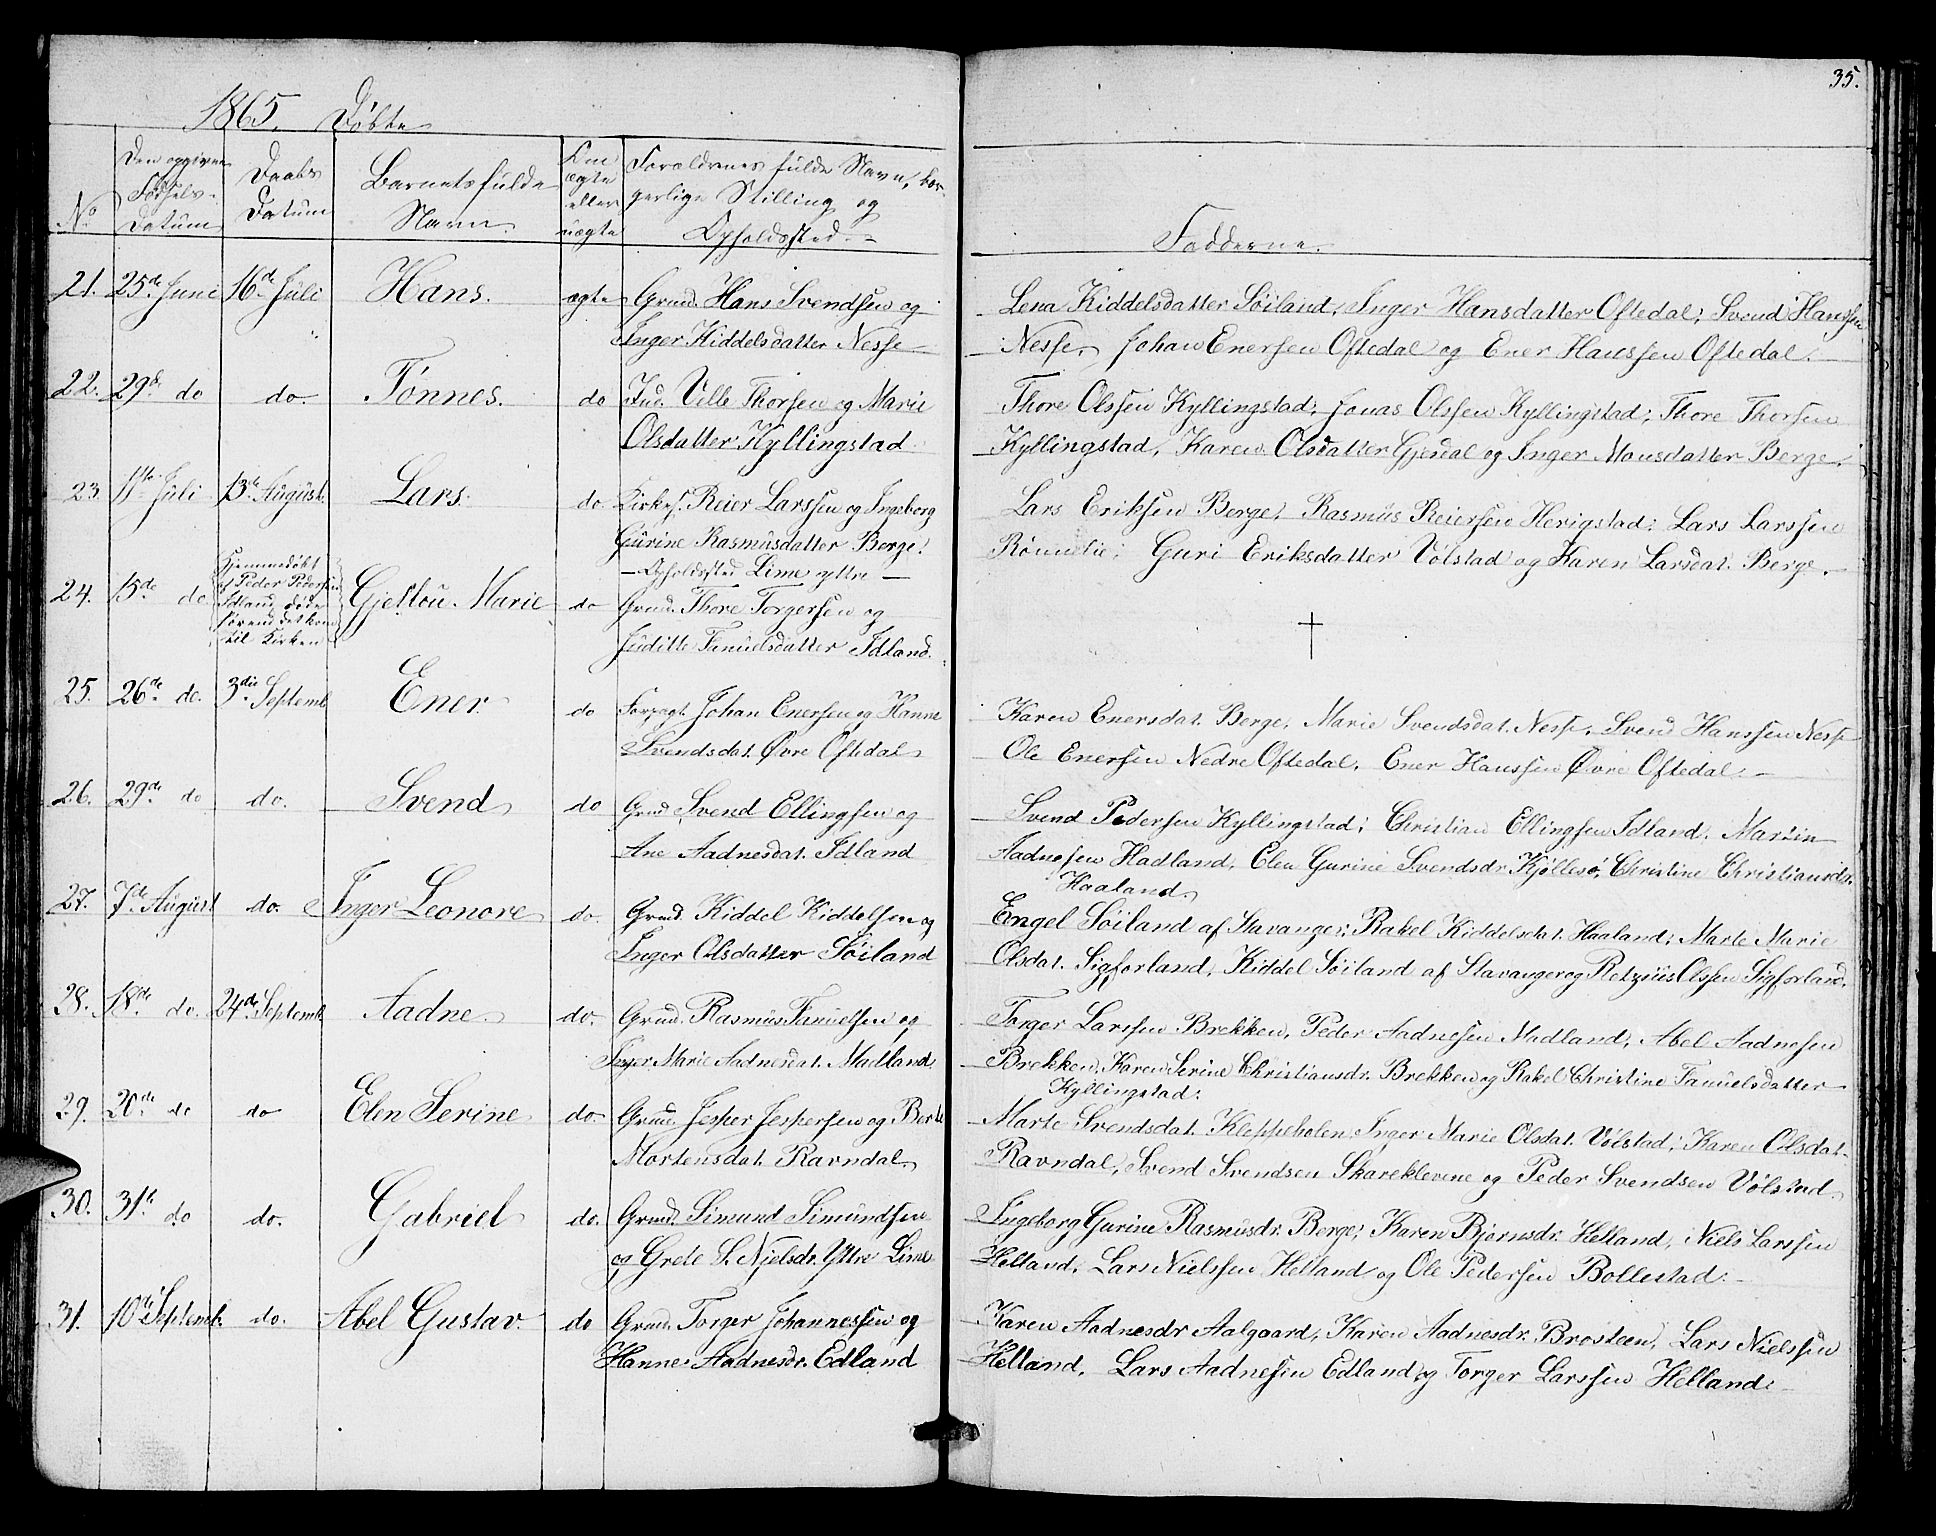 35.
1865. Døbte
No
Den opgivne Fødsels-Datum
Daabs Datum
Barnets fulde Navn.
Om ægte eller uægte
Forældrenes fulde Navn, borgerlige Stilling og Opholdssted.
Fadderne.
21. 25de Juni 16de Juli Hans. ægte Grmd. Hans Svendsen og
Inger Kiddelsdatter Nesse
Lena Kiddelsdatter Söiland, Inger Hansdatter Oftedal; Svend Hanssen
Nesse, Johan Enersen Oftedal og Ener Hanssen Oftedal.
22. 29de do do. Tönnes. do Ind. Ville Thorsen og Marie
Olsdatter Kyllingstad
Thore Olssen Kyllingstad; Jonas Olssen Kyllingstad; Thore Thorsen
Kyllingstad, Karen Olsdatter Gjesdal og Inger Monsdatter Berge.
23. 11te Juli 13de August. Lars. do. Kirkes. Reier Larssen og Ingeborg
Gurine Rasmusdatter Berge.
- Opholdssted Lime ytre -
Lars Eriksen Berge; Rasmus Reiersen Herigstad; Lars Larssen
Römelie; Guri Eriksdatter Völstad og Karen Larsdat. Berge.
24. 15de do Hjemmedöbt
af Peder Pedersen
Idland, döde
förend det kom
til Kirken
Gjellou Marie do Grmd. Thore Torgersen og
Juditte Tanuelsdatter Idland.
†
25. 26de do. 3die Septemb. Ener do Forpagt. Johan Enersen og Hanne
Svendsdat. Øvre Oftedal
Karen Enersdat. Berge, Marie Svendsdat. Nesse, Svend Hanssen Nesse
Ole Enersen Nedre Oftedal, Ener Hanssen Øvre Oftedal. -
26. 29de do do. Svend do Grmd Svend Ellingsen og
Ane Aadnesdat. Idland
Svend Pedersen Kyllingstad; Christian Ellingsen Idland. Martin
Aadnesen Hadland, Elen Gurine Svendsdr. Kjöllesö, Christine Christiansdr.
Haaland.
27. 7de August do. Inger Leonore do. Grmd. Kiddel Kiddelsen og
Inger Olsdatter Söiland
Engel Söiland af Stavanger; Rakel Kiddelsdat. Haaland; Marte Marie
Olsdat. Sigforland, Kiddel Söiland af Stavanger og Retzius Olssen Sigforland.
28. 18de do. 24de Septemb. Aadne. do. Grmd. Rasmus Tanuelsen og
Inger Marie Aadnesdat. Madland
Torger Larssen Brekken, Peder Aadnesen Madland, Abel Aadnesen
Brekken, Karen Serine Christiansdr. Brekken og Rakel Christine Tanuelsdatter
Kyllingstad.
29. 20de do do Elen Serine do. Grmd. Jesper Jespersen og Berte
Mortensdat. Ravndal
Marte Svendsdat. Kleppeholen, Inger Marie Olsdat. Völstad, Karen Olsdat.
Ravndal, Svend Svendsen Skareklevene og Peder Svendsen Völstad
30. 31te do do. Gabriel do. Grmd. Simund Simundsen
og Grete S. Njelsdr. Yttre Lime
Ingeborg Gurine Rasmusdr. Berge, Karen Bjørnsdr. Helland, Niels Larssen
Helland, Lars Nielssen Helland og Ole Pedersen Bollestad. -
31. 10de Septemb. do. Abel Gustav. do Grmd. Torger Johannessen og
Hanne Aadnesdr. Edland
Karen Aadnesdr Aalgaard, Karen Aadnesdr. Brosteen, Lars Nielssen
Helland, Lars Aadnesen Edland og Torger Larssen Helland. -